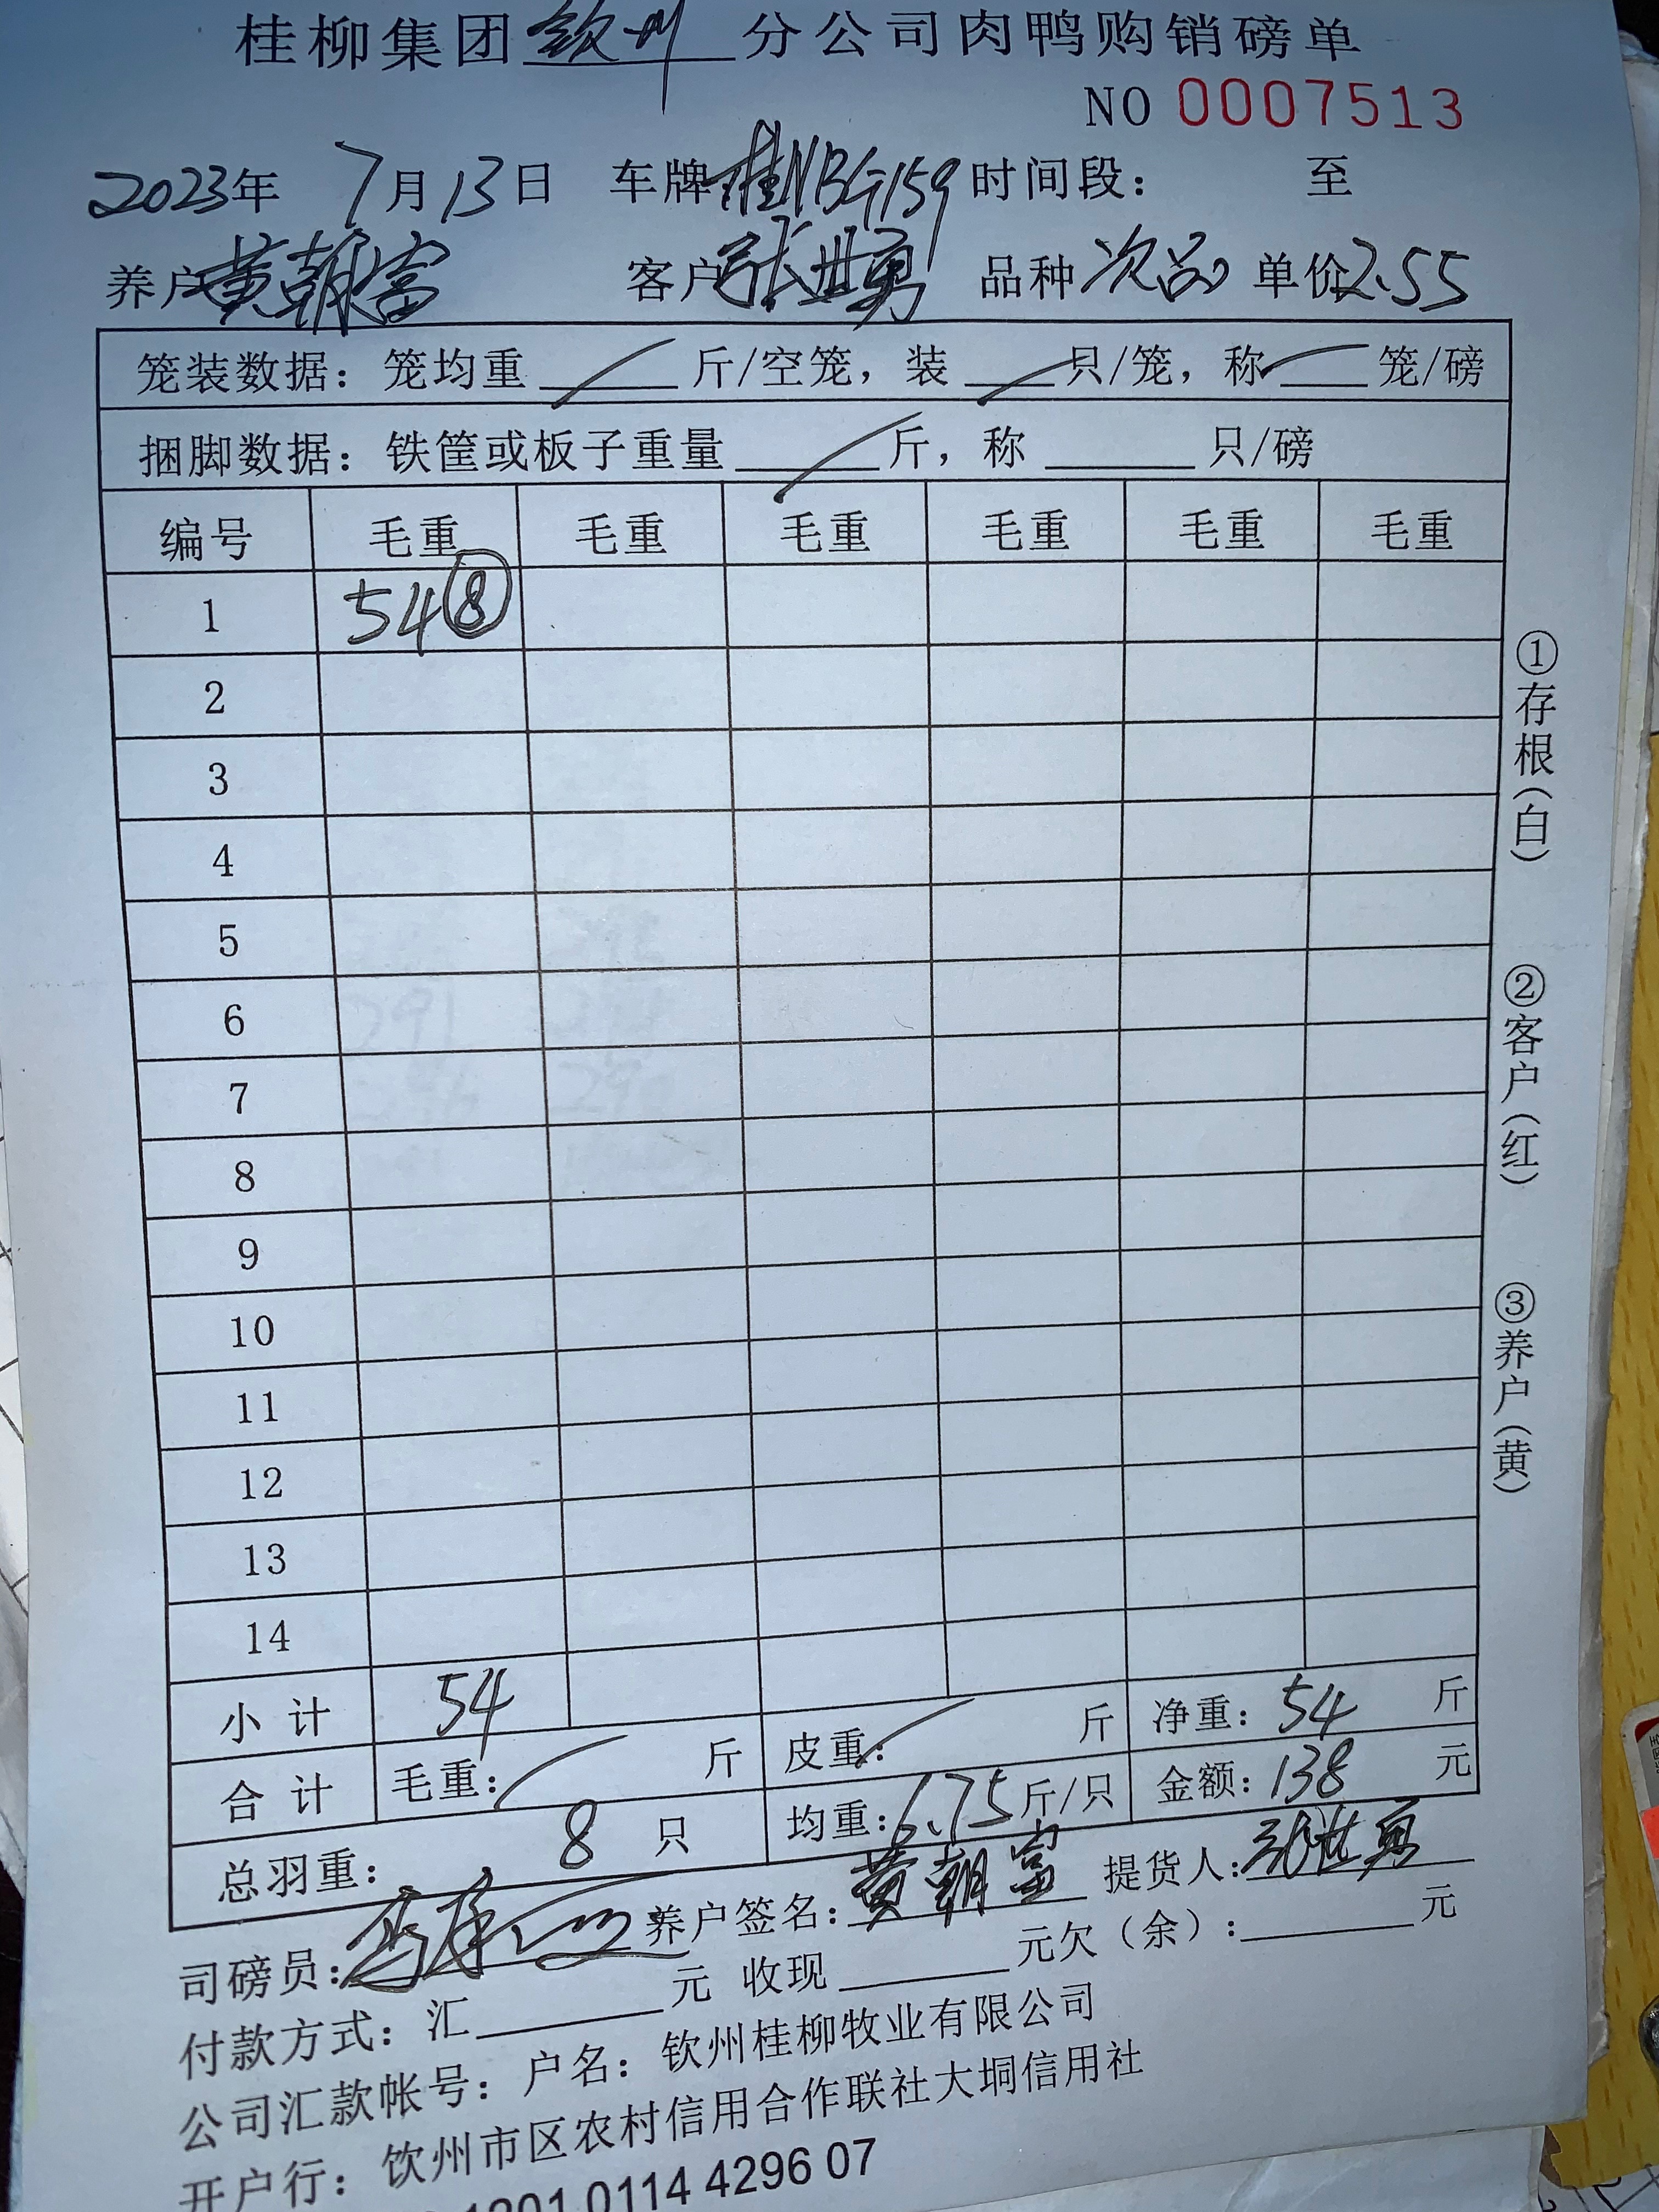 桂柳集团钦州分公司肉鸭购销磅单
NO 0007513
2023年 7月13日 车牌桂NBG159 时间段： 至
养户黄朝富 客户张世勇 品种次品 单价2.55
笼装数据：笼均重 斤/空笼，装 只/笼，称 笼/磅
捆脚数据：铁筐或板子重量 斤，称 只/磅
编号 毛重 毛重 毛重 毛重 毛重 毛重
1 54⑧
2
3
4
5
6
7
8
9
10
11
12
13
14
小计 54
合计 毛重： 斤 皮重： 斤 净重：54 斤
总羽重： 8 只 均重：6.75斤/只 金额：138 元
司磅员： 养户签名：黄朝富 提货人：张世勇
付款方式：汇 元 收现 元欠（余）： 元
公司汇款帐号：户名：钦州桂柳牧业有限公司
开户行：钦州市区农村信用合作联社大垌信用社
1201 0114 4296 07
①存根（白）
②客户（红）
③养户（黄）